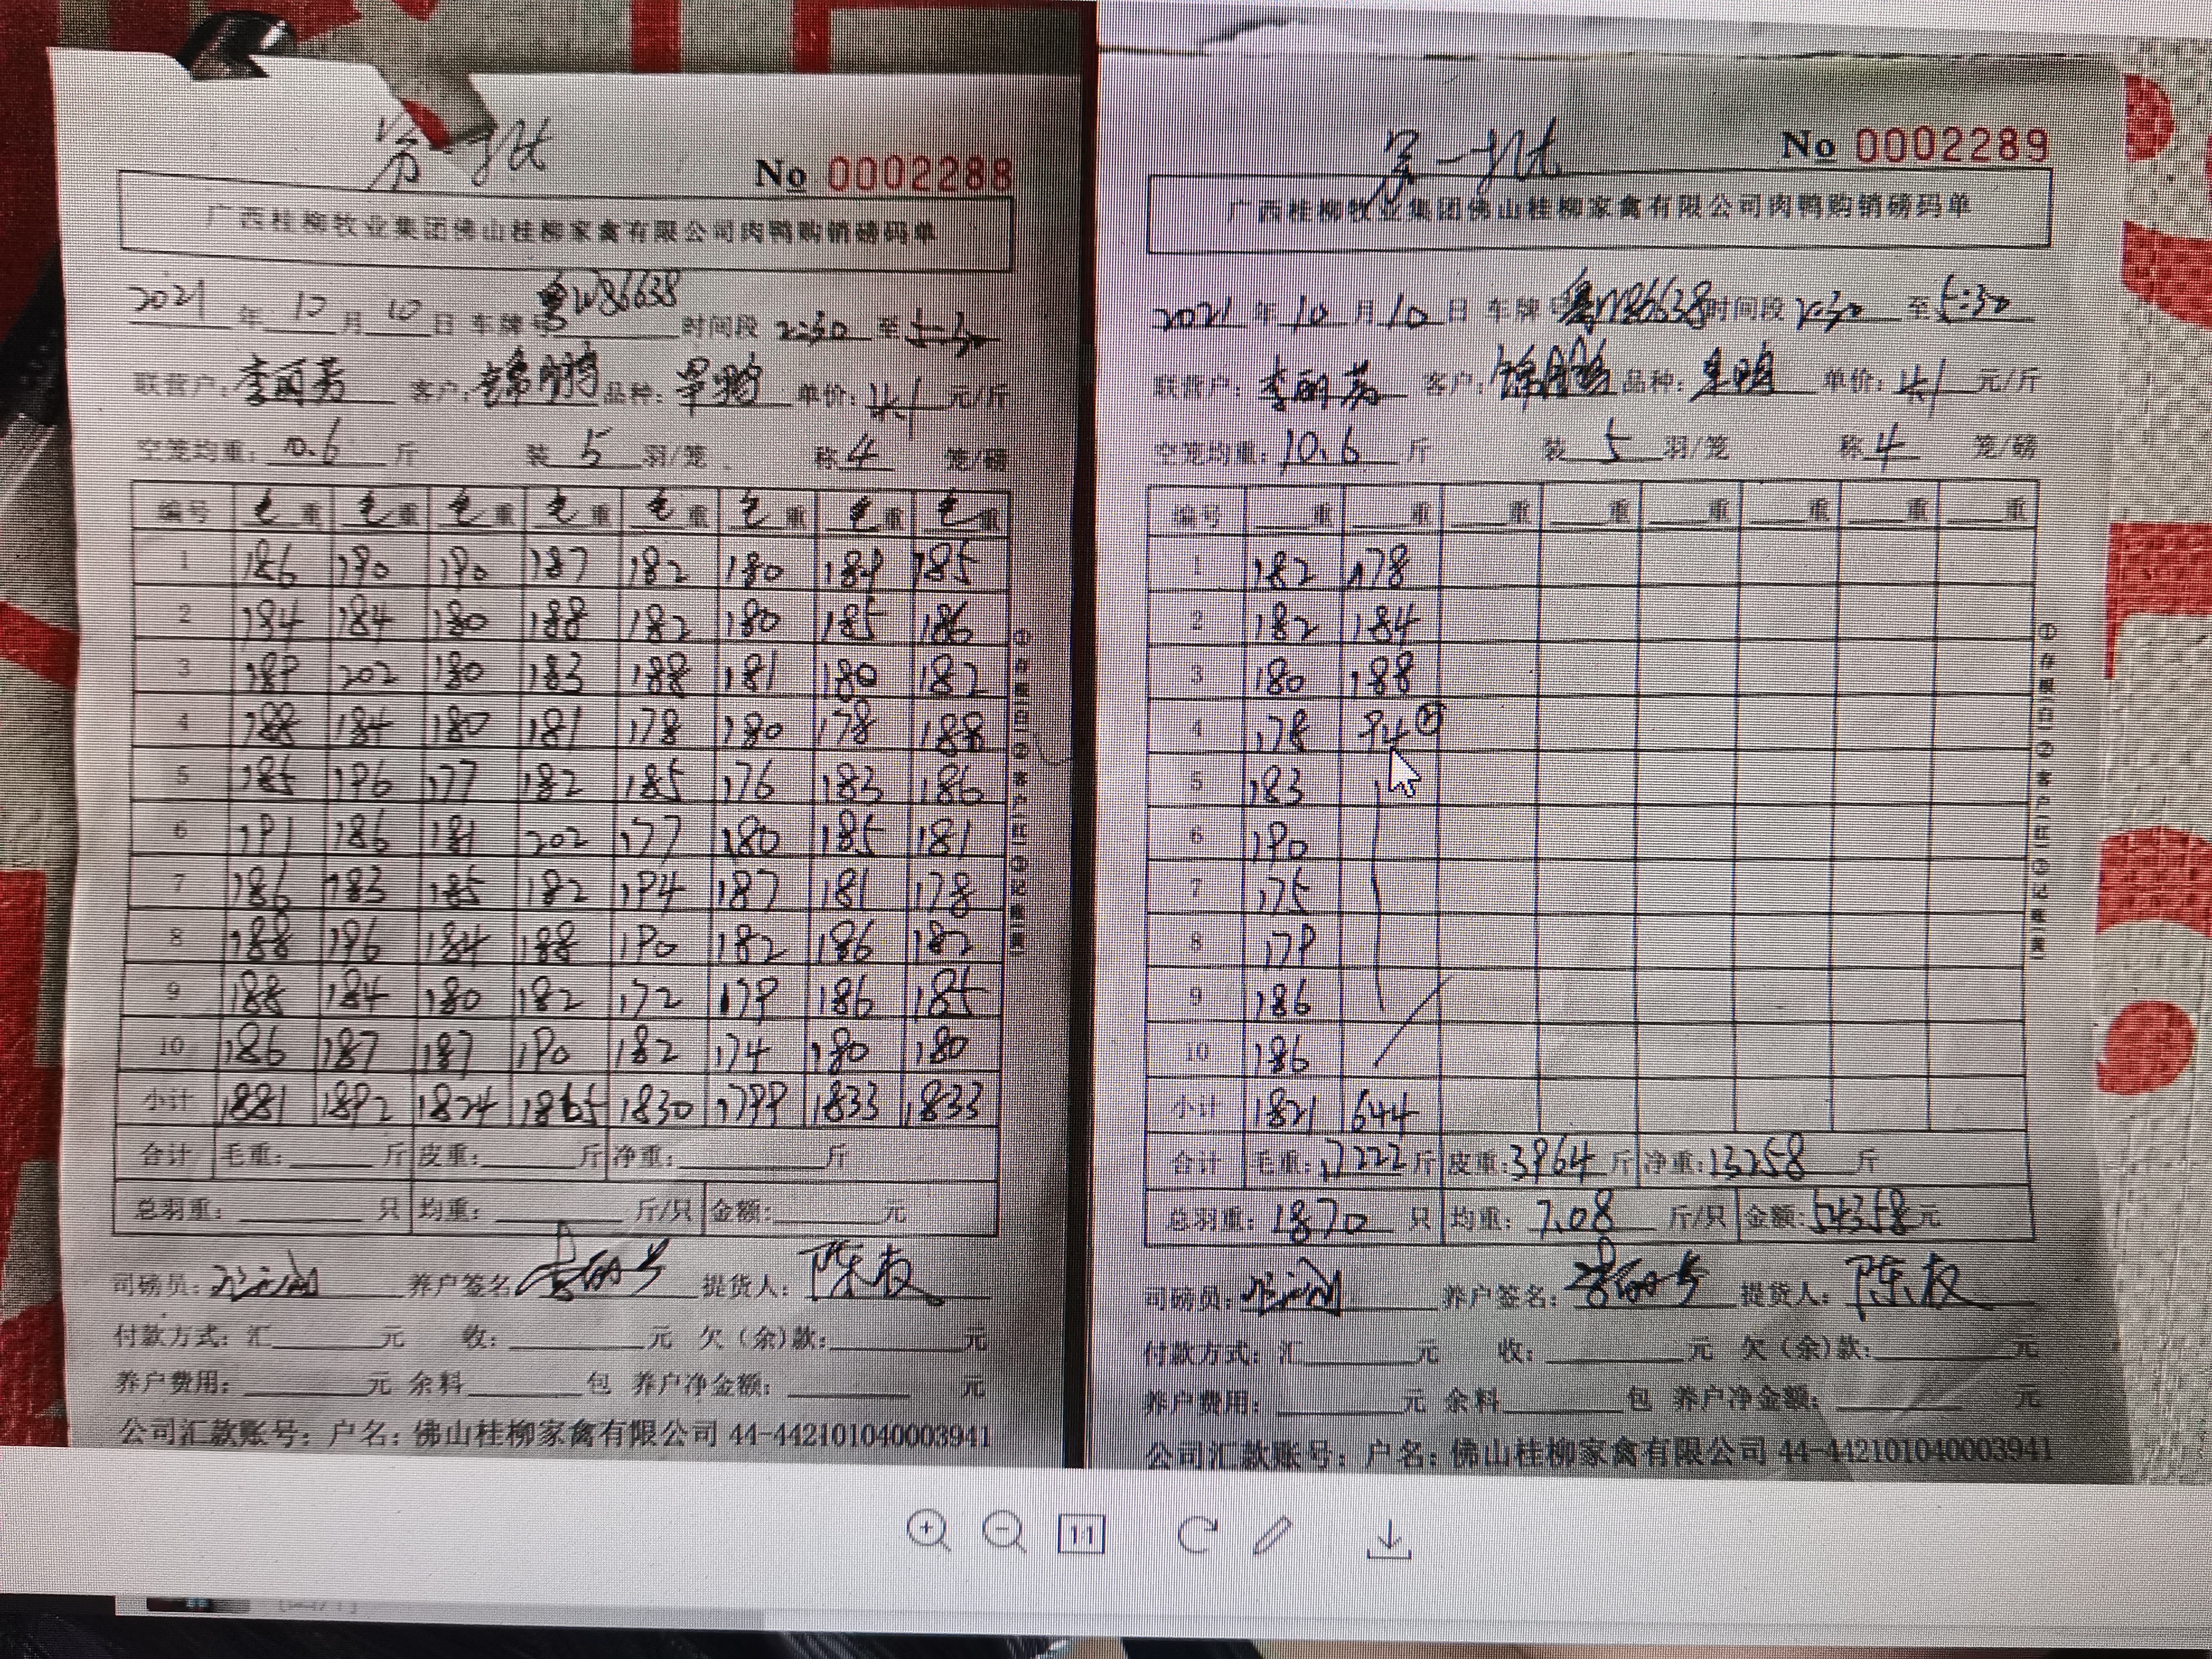 第一批
No 0002288
广西桂柳牧业集团佛山桂柳家禽有限公司肉鸭购销磅码单
2021年10月10日 车牌号粤W86638 时间段2:30至5:30
联营户:李丽芳 客户: 品种: 单价:4.1元/斤
空笼均重:10.6斤 装5羽/笼 称4笼/磅
编号 毛重 毛重 毛重 毛重 毛重 毛重 毛重 毛重
1 186 190 190 187 182 180 189 185
2 184 184 180 188 182 180 185 186
3 189 202 180 183 188 181 180 182
4 188 184 180 181 178 180 178 188
5 185 196 177 182 185 176 183 186
6 191 186 181 202 177 180 185 181
7 186 183 185 182 194 187 181 178
8 188 196 184 188 190 182 186 182
9 188 184 180 182 172 179 186 185
10 186 187 187 190 182 174 180 180
小计 1881 1892 1824 1865 1830 1799 1833 1833
合计 毛重:斤 皮重:斤 净重:斤
总羽重:只 均重:斤/只 金额:元
司磅员: 养户签名 提货人:陈友
付款方式:汇元 收:元 欠(余)款:元
养户费用:元 余料包 养户净金额:元
公司汇款账号:户名:佛山桂柳家禽有限公司 44-442101040003941
第一批
No 0002289
广西桂柳牧业集团佛山桂柳家禽有限公司肉鸭购销磅码单
2021年10月10日 车牌号粤W86638时间段2:30至5:30
联营户:李丽芳 客户: 品种: 单价:4.1元/斤
空笼均重:10.6斤 装5羽/笼 称4笼/磅
编号 重 重 重 重 重 重 重 重
1 182 178
2 182 184
3 180 188
4 178 94
5 183
6 190
7 175
8 179
9 186
10 186
小计 1821 644
合计 毛重:17222斤 皮重:3964斤 净重:13258斤
总羽重:1870只 均重:7.08斤/只 金额:54358元
司磅员: 养户签名: 提货人:陈友
付款方式:汇元 收:元 欠(余)款:元
养户费用:元 余料包 养户净金额:元
公司汇款账号:户名:佛山桂柳家禽有限公司 44-442101040003941
1:1